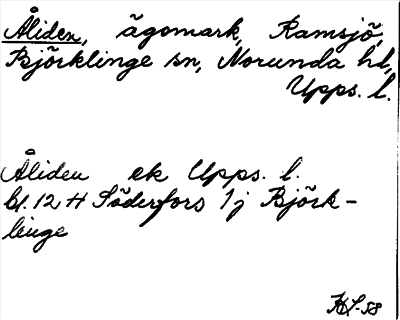 Åliden, ägomark, Ramsjö,
Björklinge sn, Norunda hd,
Upps. l.
Åliden ek Upps. l.
bl. 12 H Söderfors 1j Björk-
linge